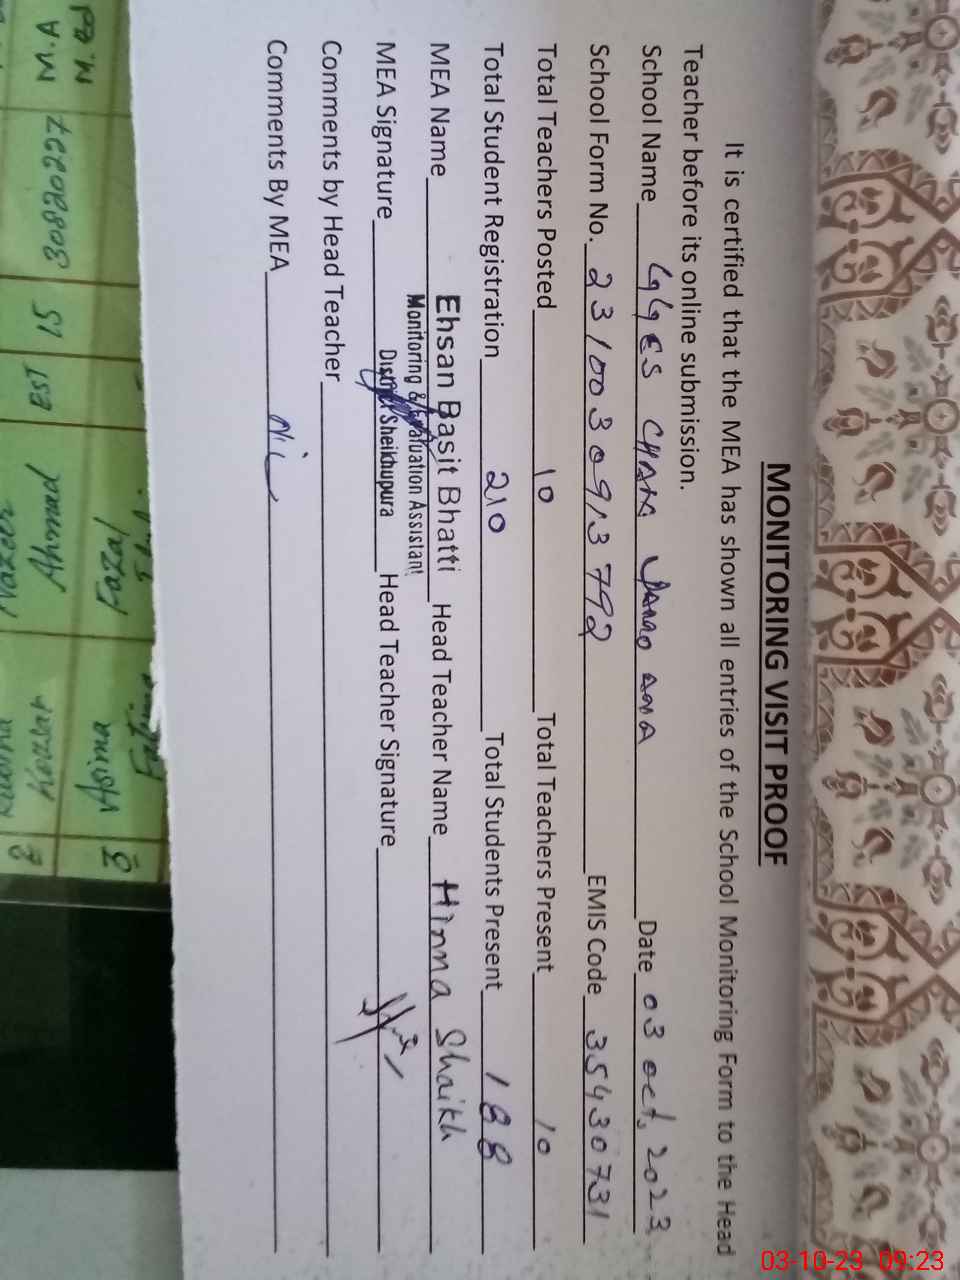 MONITORING VISIT PROOF
It is certified that the MEA has shown all entries of the School Monitoring Form to the Head
Teacher before its online submission.
School Name GGES CHAK Date 03 oct, 2023
School Form No. 2310030913792 EMIS Code 35430731
Total Teachers Posted 10 Total Teachers Present 10
Total Student Registration 210 Total Students Present 188
MEA Name Ehsan Basit Bhatti Head Teacher Name Hinna Shaikh
Monitoring & Evaluation Assistant
MEA Signature District Sheikhupura Head Teacher Signature
Comments by Head Teacher
Comments By MEA NiL
M.A 15 EST Ahmad
Fazal
03-10-23 09:23